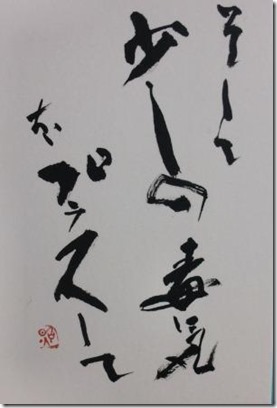 そして
少しの毒気
を
プラスして